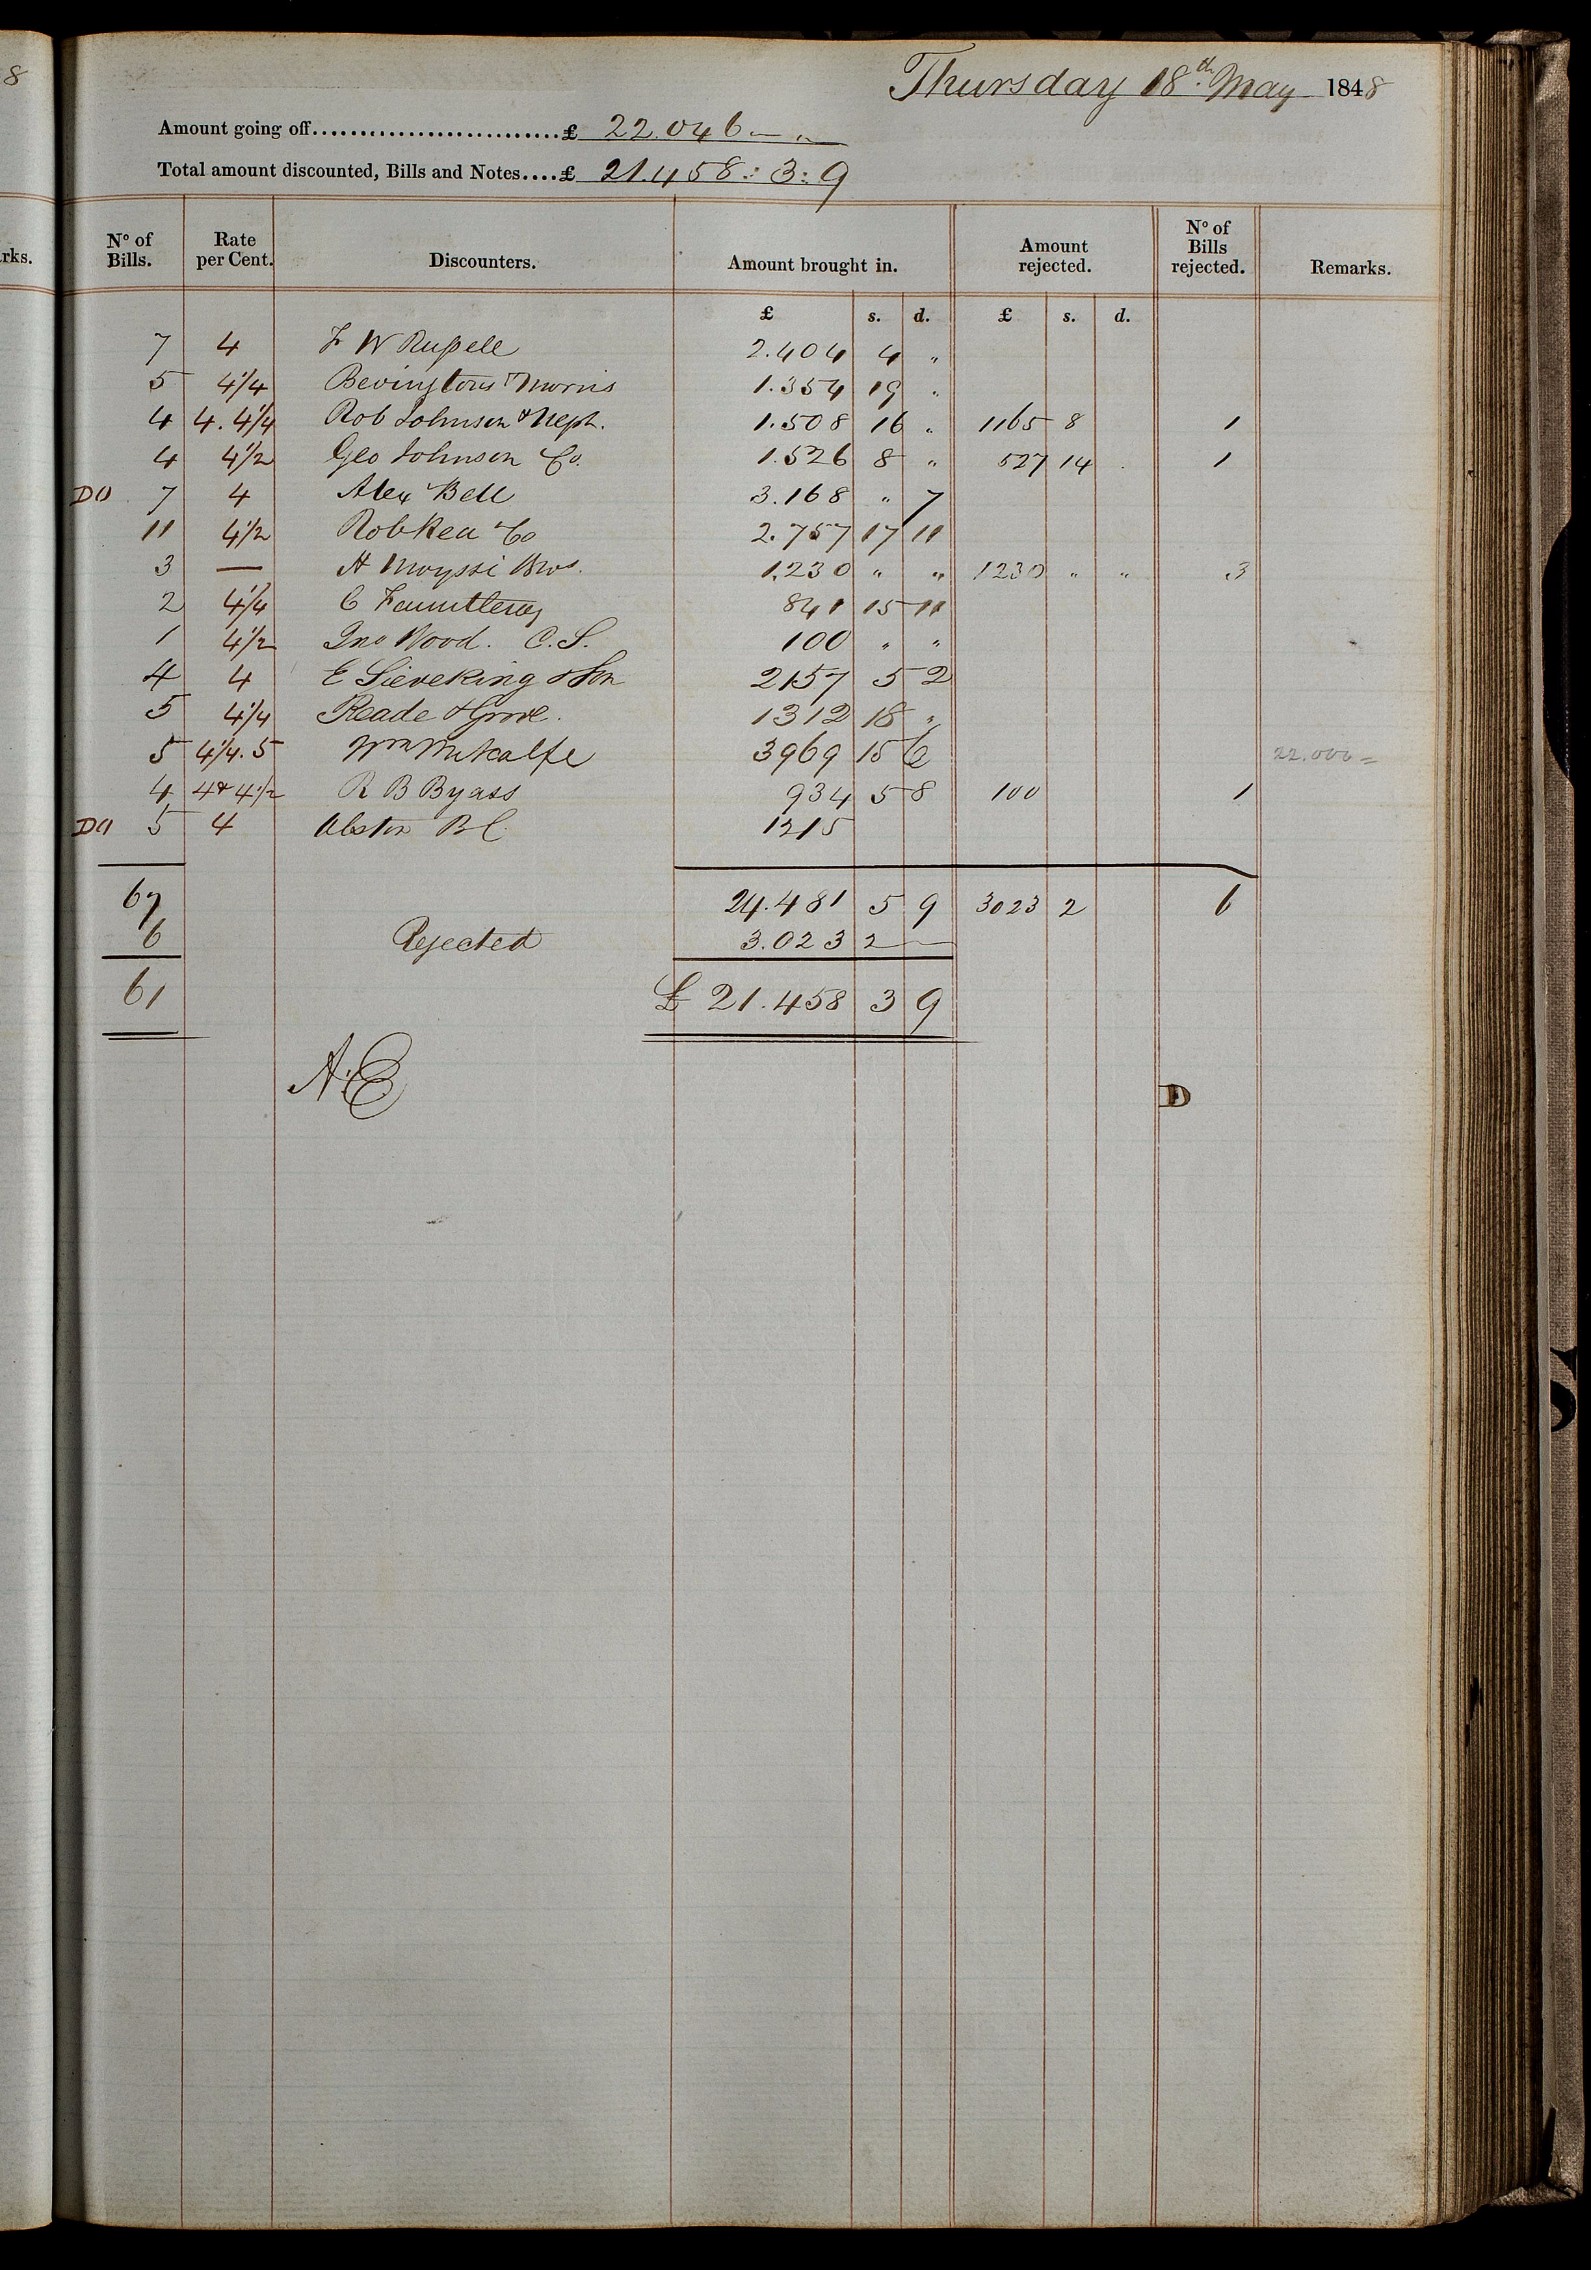 8
Thursday 18th May 1848
Amount going off..........................£ 22.046 — "
Total amount discounted, Bills and Notes....£ 21.458 : 3 : 9
rks.
No of Bills. Rate per Cent. Discounters. Amount brought in. Amount rejected. No of Bills rejected. Remarks.
£ s. d. £ s. d.
7 4 F W Russell 2.404 4 "
5 4 1/4 Bevingtons & Morris 1.354 19 "
4 4. 4 1/4 Rob Johnson & Neph. 1.508 16 " 1165 8 1
4 4 1/2 Geo Johnson & Co. 1.526 8 " 527 14 . 1
DO 7 4 Alex Bell 3.168 " 7
11 4 1/2 Rob Kea & Co 2.757 17 11
3 — A Bros. 1.230 " " 1230 " " 3
2 4 1/4 C Fauntleroy 841 15 11
1 4 1/2 Jno Wood. C.S. 100 " "
4 4 E Sieveking & Son 2157 5 2
5 4 1/4 Reade & Grove. 1312 18 "
5 4 1/4. 5 Wm Metcalfe 3969 15 6
4 4 & 4 1/2 R B Byass 934 5 8 100 1
DO 5 4 Alston B C. 1215
67 24.481 5 9 3023 2 6
6 Rejected 3.023 2 —
61 £ 21.458 3 9
22.000 =
A.E
D